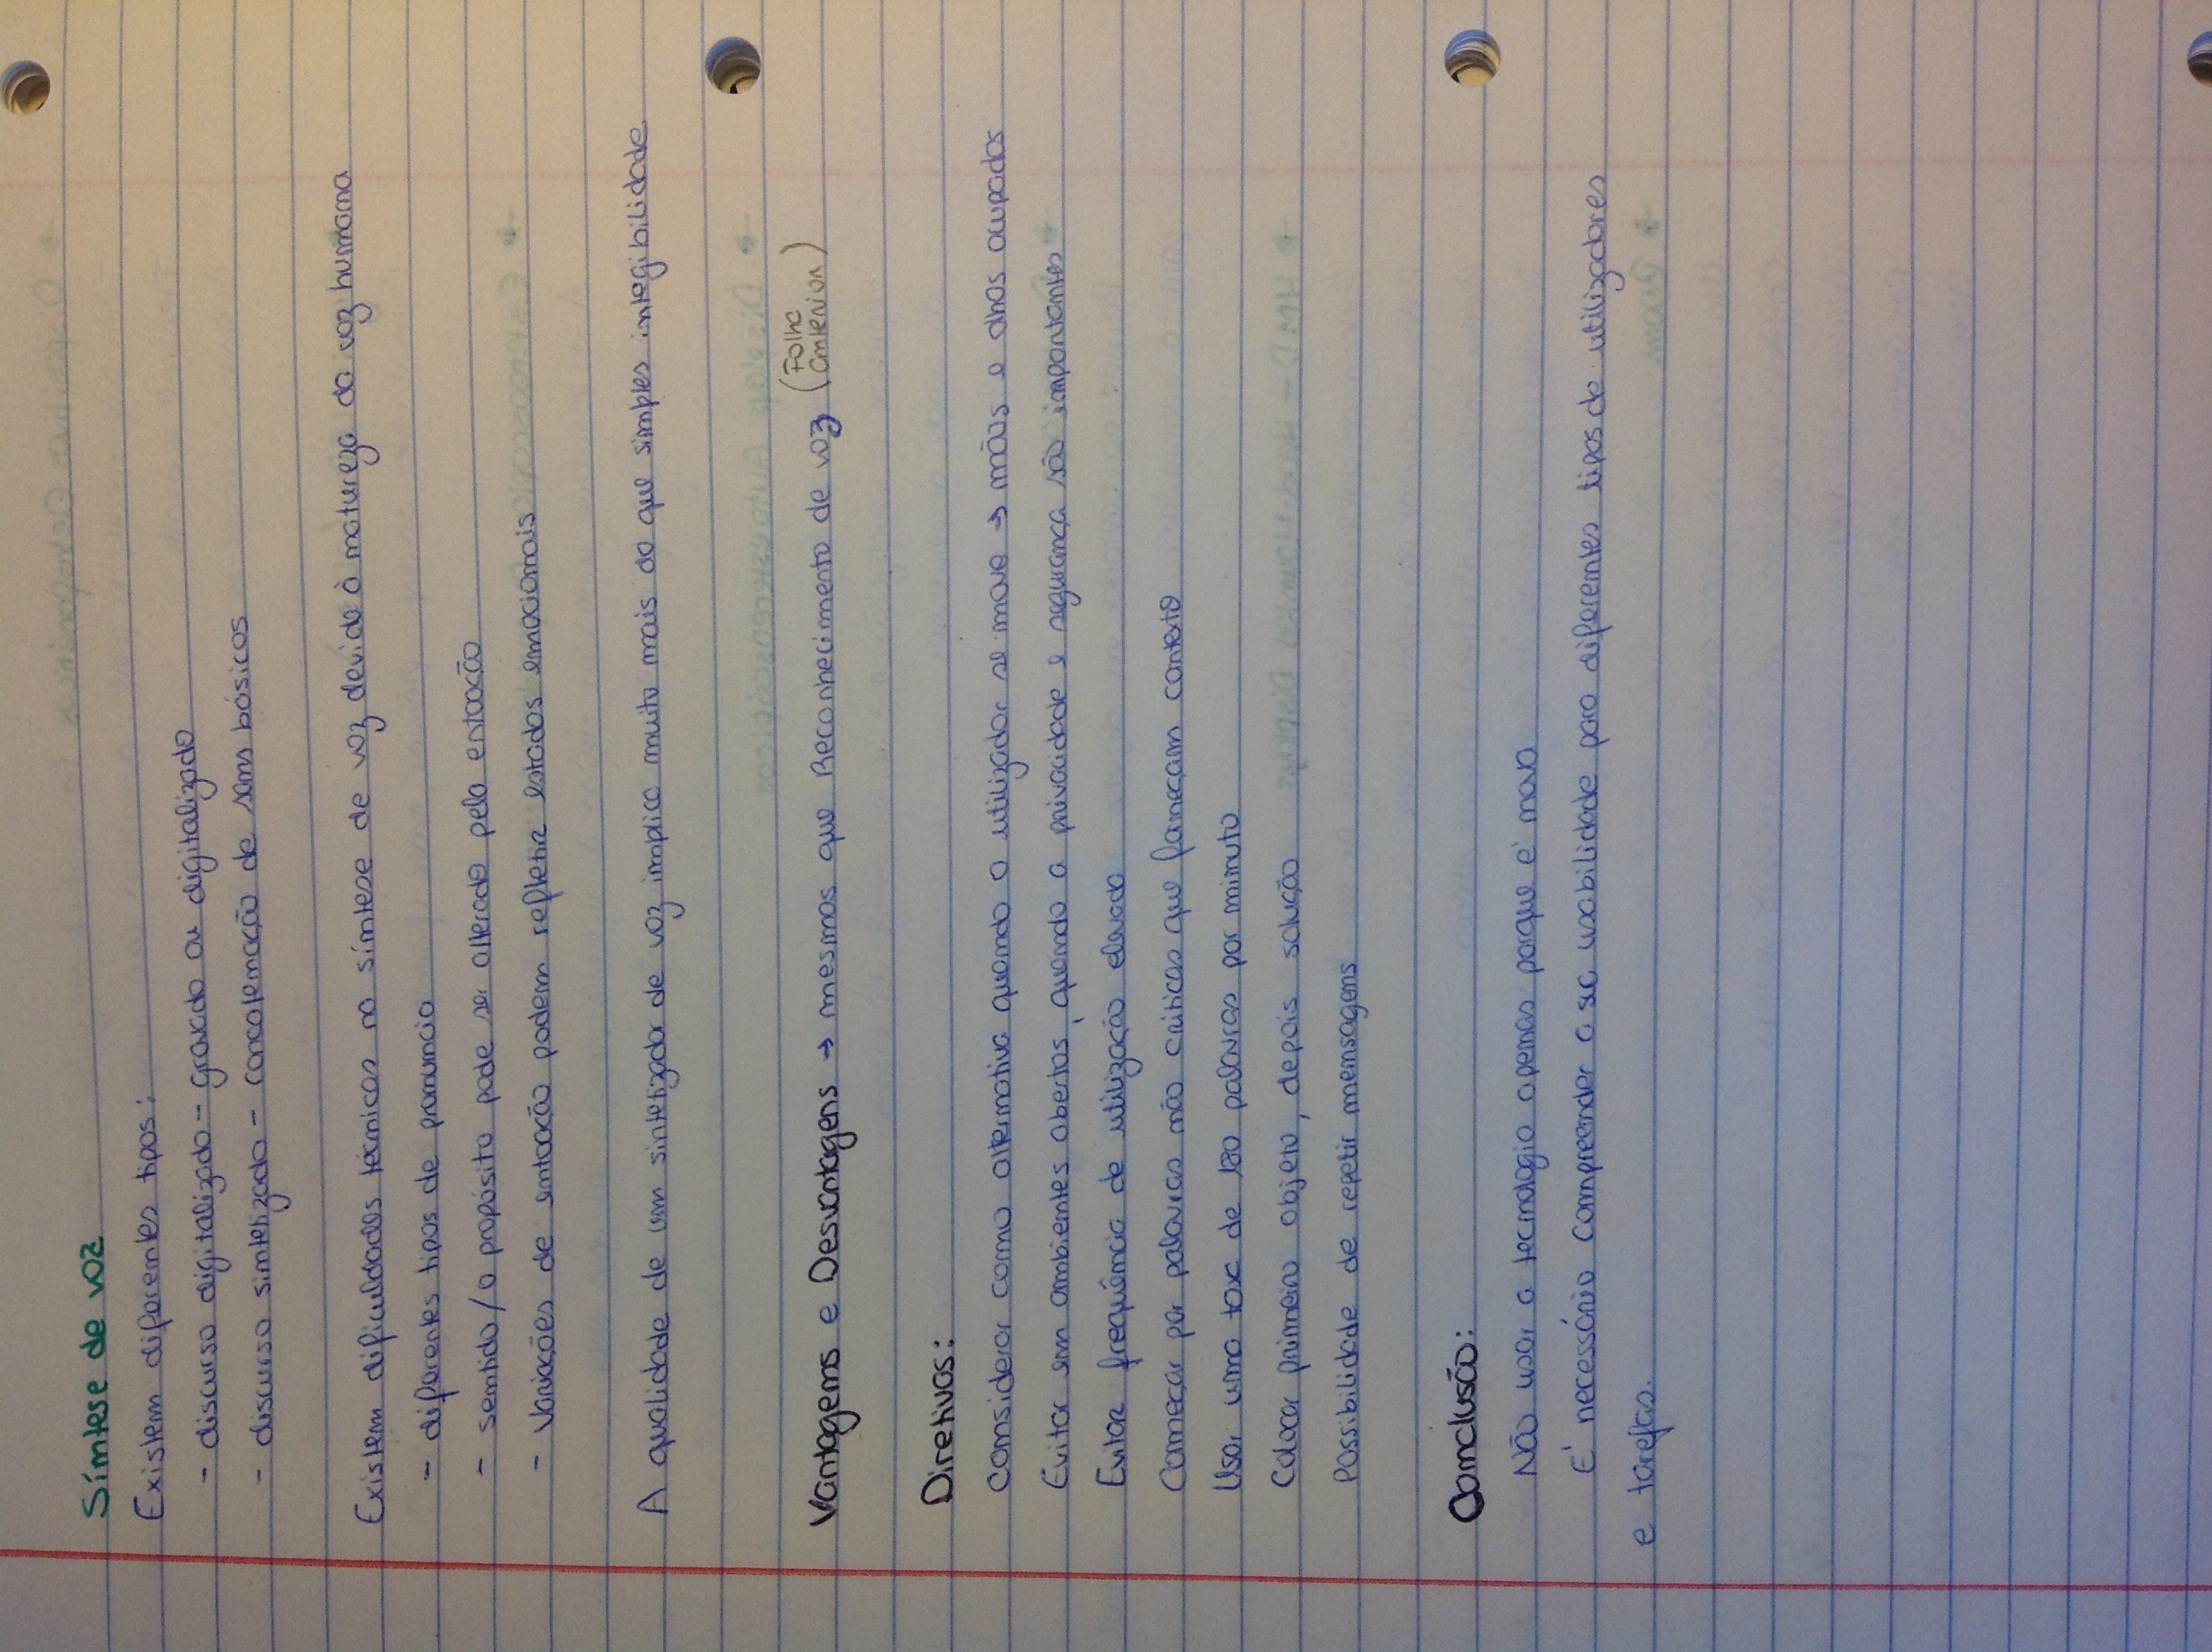 Síntese de voz
Existem diferentes tipos:
- discurso digitalizado - gravado ou digitalizado
- discurso sintetizado - concatenação de sons básicos
Existem dificuldades técnicas na síntese de voz devido à natureza da voz humana
- diferentes tipos de pronuncia
- sentido/o propósito pode ser alterado pela entoação
- Variações de entoação podem refletir estados emocionais
A qualidade de um sintetizador de voz implica muito mais do que simples integibilidade
Vantagens e Desvantagens → mesmas que Reconhecimento de voz (Folha anterior)
Diretivas:
Considerar como alternativa quando o utilizador se move → mãos e olhos ocupados
Evitar em ambientes abertos, quando a privacidade e segurança são importantes
Evitar frequência de utilização elevada
Começar por palavras não críticas que forneçam contexto
Usar uma taxa de 180 palavras por minuto
Colocar primeiro objeto, depois solução
Possibilidade de repetir mensagens
Conclusão:
Não usar a tecnologia apenas porque é nova
É necessário compreender a sua usabilidade para diferentes tipos de utilizadores
e tarefas.